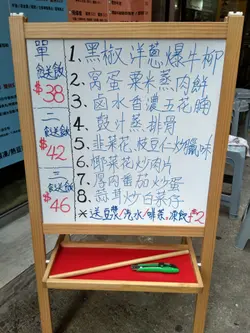 單
食送飯
$38
二
食送飯
$42
三
食送飯
$46
1. 黑椒洋蔥爆牛柳
2. 窩蛋粟米蒸肉餅
3. 鹵水首濃五花腩
4. 鼓汁蒸排骨
5. 韭菜花,枝豆仁炒臘味
6. 椰菜花炒肉片
7. 厚肉番茄炒蛋
8. 蒜茸炒白菜仔
* 送豆漿/汽水/鮮菜,凍飲+$2